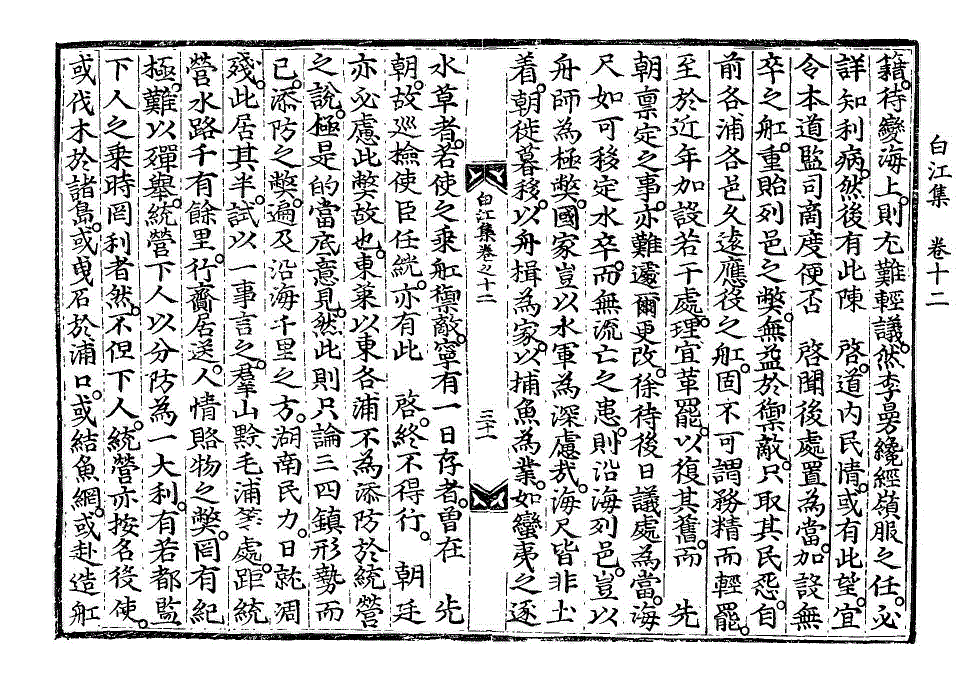 白江集 卷十二
籍。待變海上。則尤難輕議。然李曼纔經嶺服之任。必
詳知利病。然後有此陳 啓。道內民情。或有此望。宜
令本道監司商度便否 啓聞後處置爲當。加設無
卒之舡。重貽列邑之弊。無益於禦敵。只取其民怨。自
前各浦各邑久遠應役之舡。固不可謂務精而輕罷。
至於近年加設若干處。理宜革罷。以復其舊。而 先
朝稟定之事。亦難遽爾更改。徐待後日議處爲當。海
尺如可移定水卒。而無流亡之患。則沿海列邑。豈以
舟師爲極弊。國家豈以水軍爲深慮哉。海尺皆非土
着。朝徙暮移。以舟楫爲家。以捕魚爲業。如蠻夷之逐
白江集卷之十二 三十一
水草者。若使之乘舡禦敵。寧有一日存者。曾在 先
朝。故巡檢使臣任絖。亦有此 啓。終不得行。 朝廷
亦必慮此弊故也。東萊以東各浦不爲添防於統營
之說。極是的當底意見。然此則只論三四鎭形勢而
已。添防之弊。遍及沿海千里之方。湖南民力。日就凋
殘。此居其半。試以一事言之。羣山黔毛浦等處。距統
營水路千有餘里。行齎居送。人情賂物之弊。罔有紀
極。難以殫擧。統營下人以分防爲一大利。有若都監
下人之乘時罔利者然。不但下人。統營亦按名役使。
或伐木於諸島。或曳石於浦口。或結魚網。或赴造舡